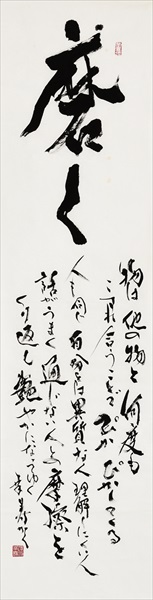 磨く
物は他の物と何度も
こすれ合うことで ぴかぴかしてくる
人も同じ 自分とは異質な人 理解しにくい人
話がうまく通じない人との摩擦を
くり返し 艶やかになってゆく